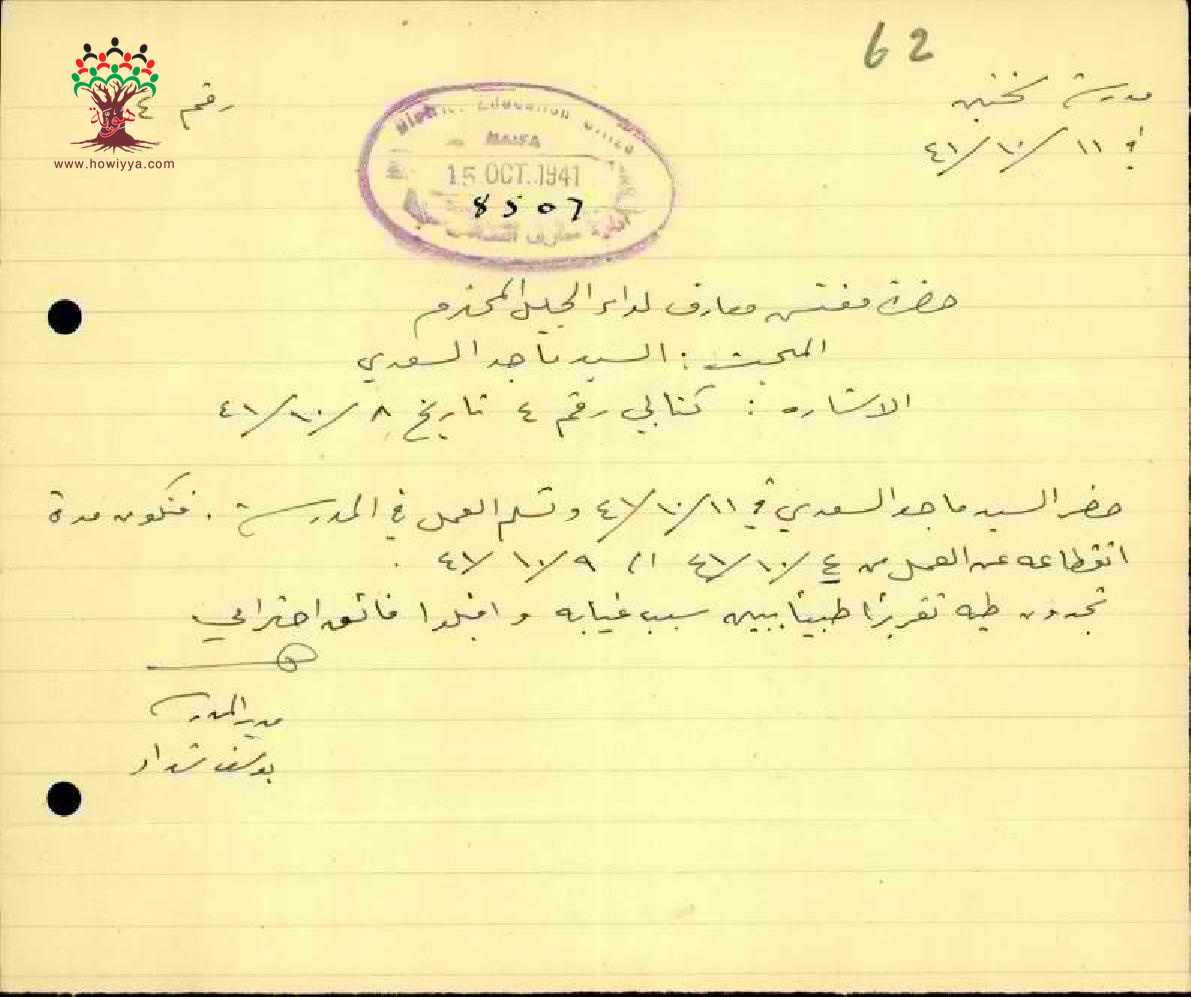 62
مدرسة سخنين
في ١١/١٠/٤١
رقم ٤
هوية
www.howiyya.com
District Education Office
HAIFA
15 OCT. 1941
8507
ادارة معارف
حضرة مفتش معارف لواء الجليل المحترم
المبحث : السيد ماجد السعدي
الاشاره : كتابي رقم ٤ تاريخ ٨/١٠/٤١
حضر السيد ماجد السعدي في ١١/١٠/٤١ وتسلم العمل في المدرسة . فتكون مدة
انقطاعه عن العمل من ٤/١٠/٤١ الى ٩/١٠/٤١ .
تجدون طيه تقريرًا طبيًا يبين سبب غيابه و اقبلوا فائق احترامي
مدير المدرسة
يوسف شداد